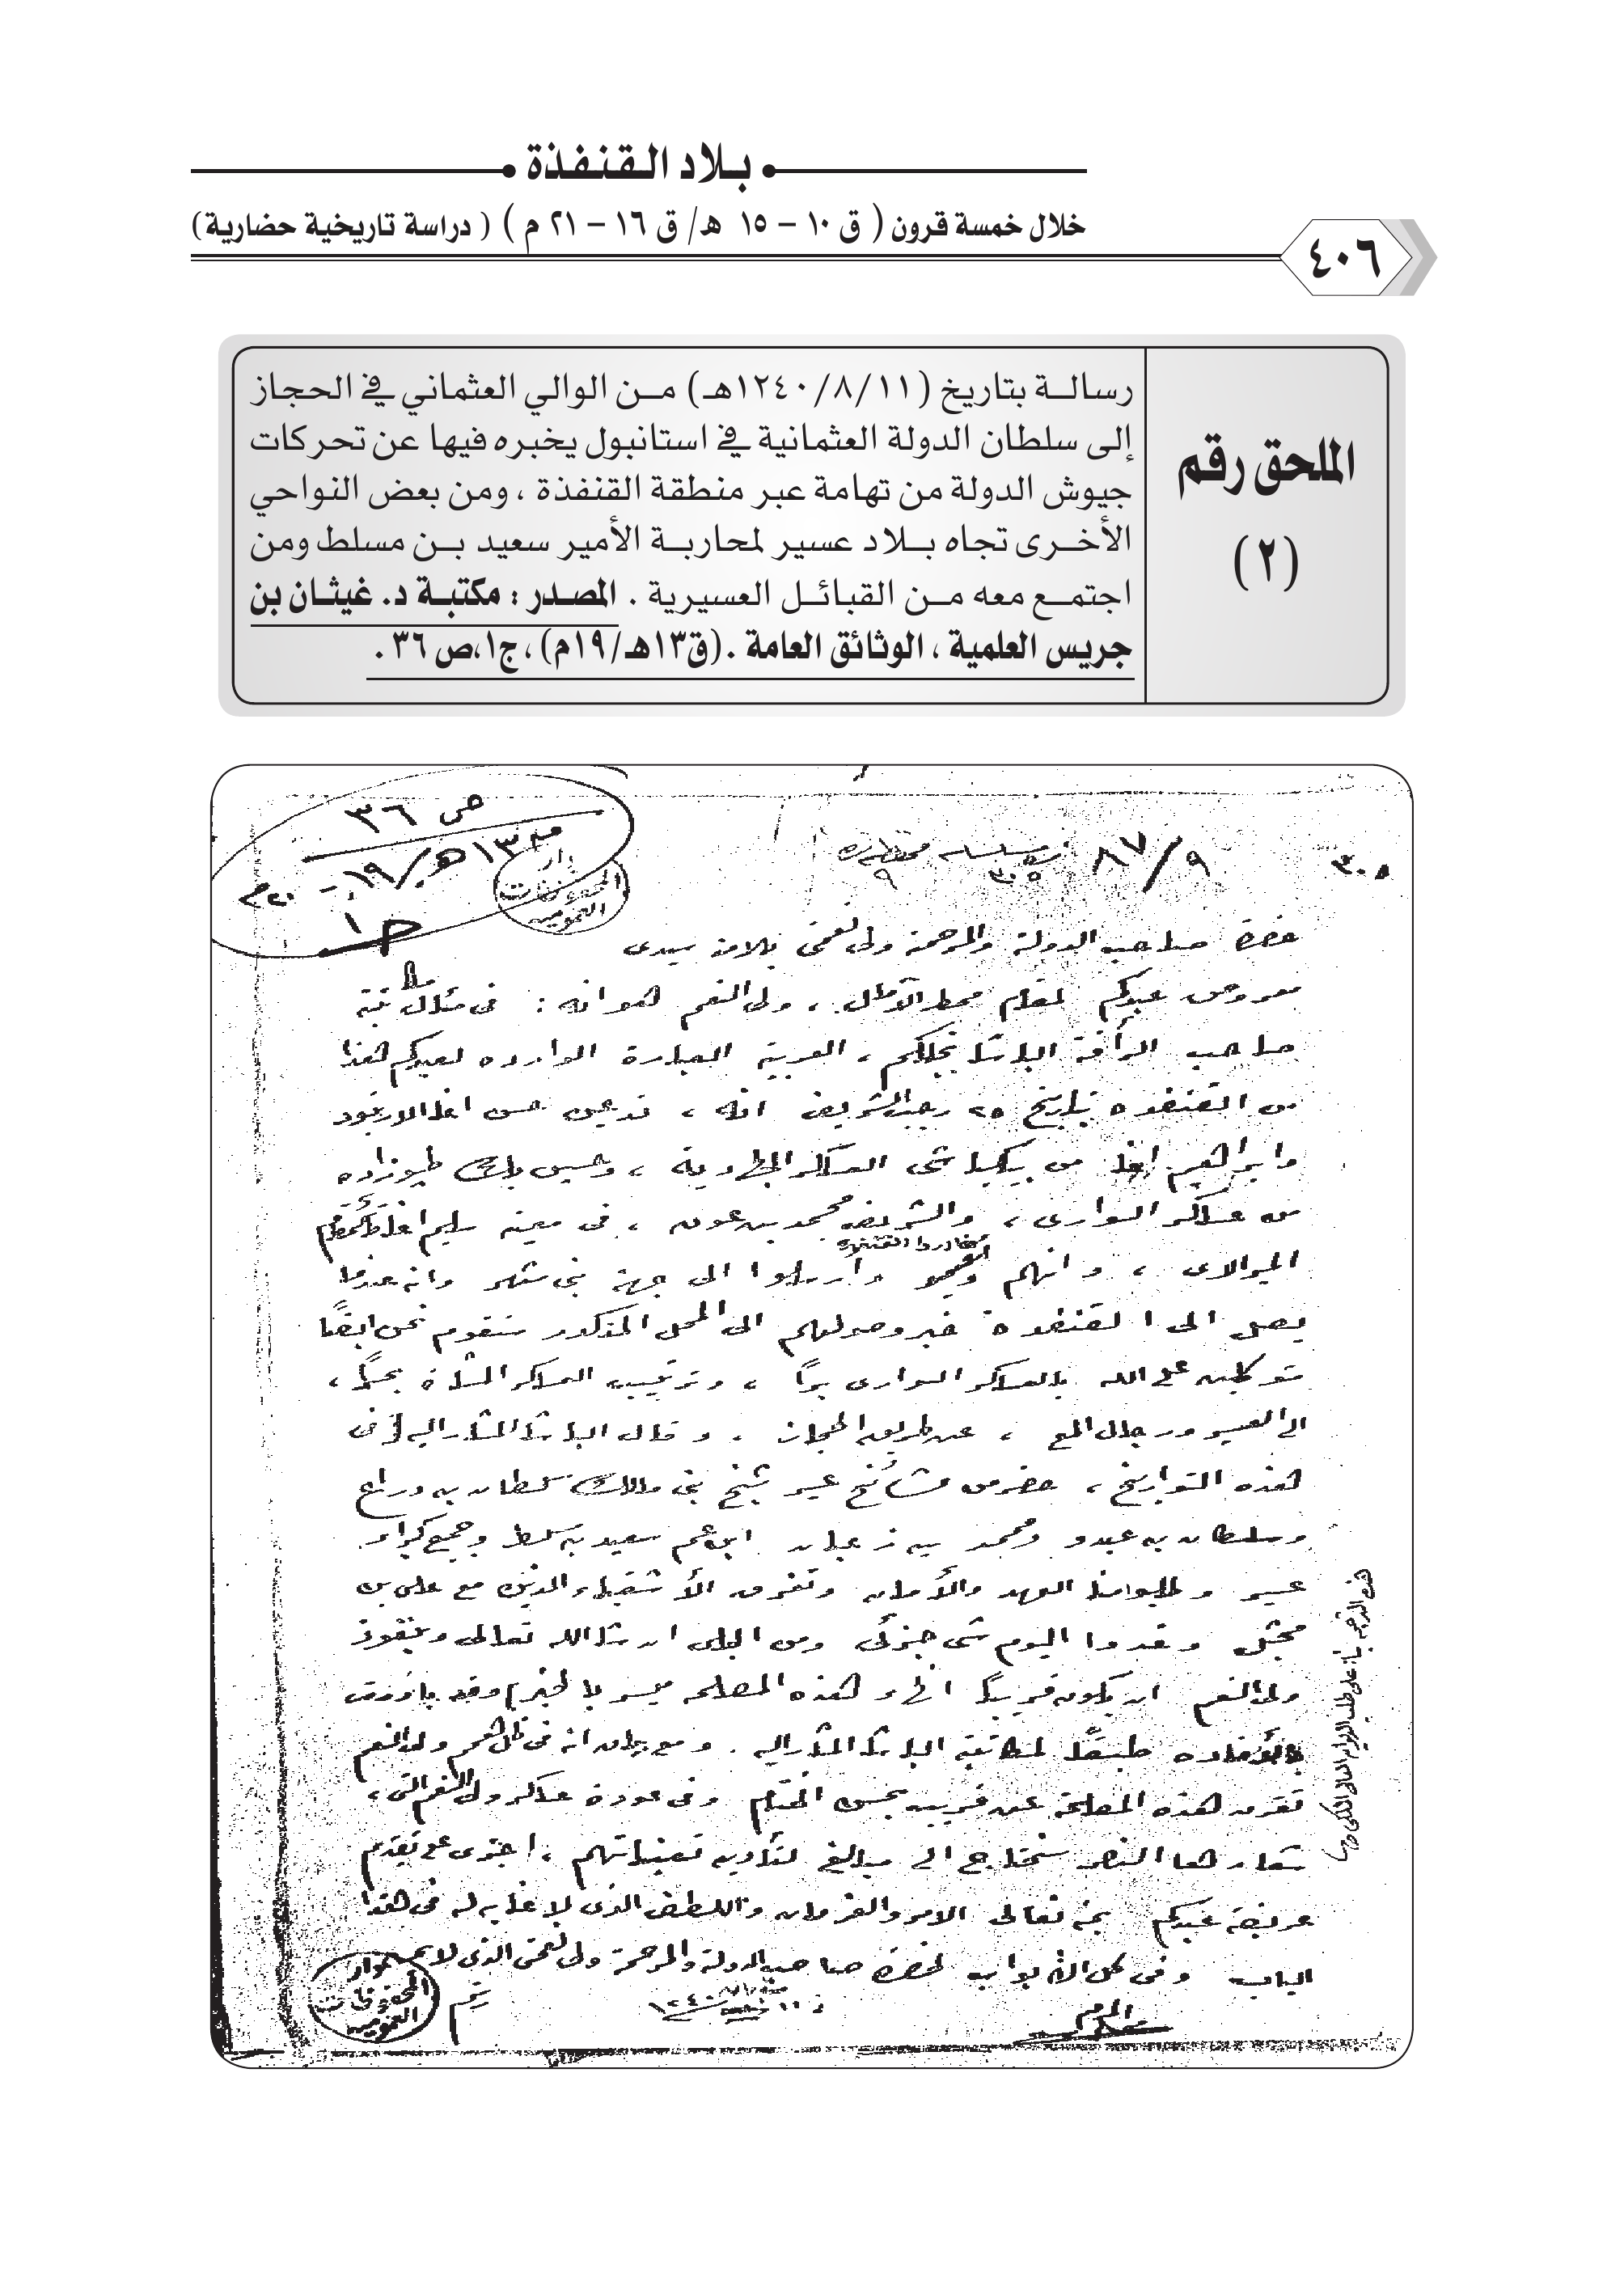 بلاد القنفذة
خلال خمسة قرون ( ق ١٠ – ١٥ هـ/ ق ١٦ – ٢١ م ) ( دراسة تاريخية حضارية)
٤٠٦
الملحق رقم
(٢)
رسالة بتاريخ (١٢٤٠/٨/١١هـ) من الوالي العثماني في الحجاز
إلى سلطان الدولة العثمانية في استانبول يخبره فيها عن تحركات
جيوش الدولة من تهامة عبر منطقة القنفذة ، ومن بعض النواحي
الأخرى تجاه بلاد عسير لمحاربة الأمير سعيد بن مسلط ومن
اجتمع معه من القبائل العسيرية . المصدر : مكتبة د. غيثان بن
جريس العلمية ، الوثائق العامة .(ق١٣هـ/١٩م)، ج١،ص ٣٦ .
ص ٣٦
ق ١٣هـ/١٩ - ٢٠م
ج١
دار
المحفوظات
العمومية
٩/٨٧
٣٠٥
حضرة صاحب الدولة والمرحمة ولى نعمتى بلا من سيدى
معروض عبدكم لمقام محط الآمال ، ولى النعم هو انه : فى
صاحب الرأفة الباشا نجلكم ، العربية العبارة الواردة لعبدكم هذا
من القنفده بتاريخ ٢٥ رجب الشريف انه ، قد عين حسن اغا
وابراهيم اغا من بيكباشى العساكر الجهادية ، وحسين بك
من عساكر السوارى ، والشريف محمد بن عون ، فى معية سليم اغا قائمقام
الميرالاى ، وانهم وارسلوا الى جهة بنى شهر وانه عندما
يصل الى القنفدة خبر وصولهم الى المحل المذكور سنقوم نحن ايضا
متوكلين على الله بالعساكر السوارى برًا ، وترتيب العساكر المشاة بحرًا ،
الى العسير ورجال المع ، عن طريق الحجاز . وقال الباشا المشار اليه فى
هذه التواريخ ، حضر من مشائخ عسير شيخ بنى مالك سلطان بن
وسلطان بن عبدو ومحمد بن ابن عم سعيد بن مسلط وجميع
عسير وطلبوا منا العهد والأمان وتفرق الأشقياء الذين مع على بن
مجثل وقدوا اليوم شى جزئى ومن ان شاء الله تعالى
ولى النعم ان يكون قريبًا هذه المصلحة ميسر بالخير
بالأفاده طبقًا لمكاتبة الباشا المشار اليه . ومع انه فى ظل همم ولى النعم
تقرن هذه المصلحة عن قريب بحسن الختام وفى عودة عساكر ولى النعم التى ،
شعارها النصر ستحتاج الى مبالغ لتأدية تعييناتهم ، اجترى على تقديم
عريضة عبدكم بمنه تعالى الامر والفرمان واللطف الذى لا غاية له فى هذا
الباب وفى كل الابواب لحضرة صاحب الدولة والمرحمة ولى نعمتى الذى
١١ ١٢٤٠
ختم
دار
المحفوظات
العمومية